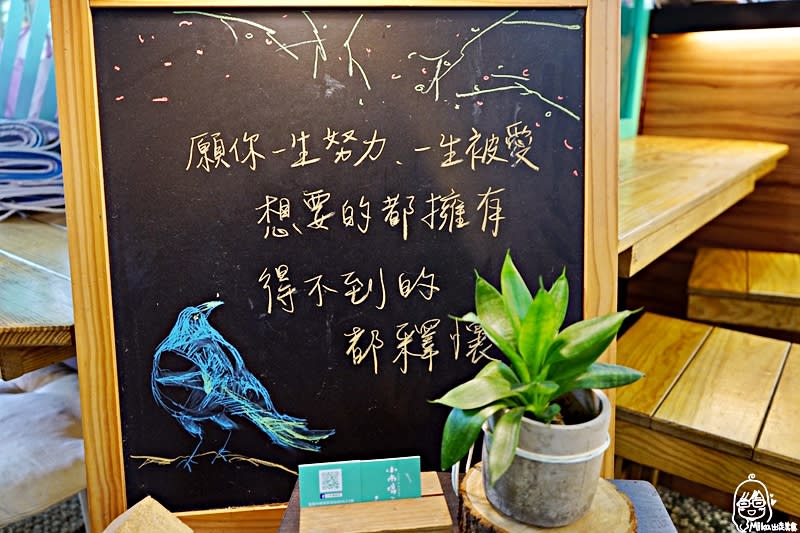 願你一生努力、一生被愛
想要的都擁有
得不到的
都釋懷
Mika出走美食